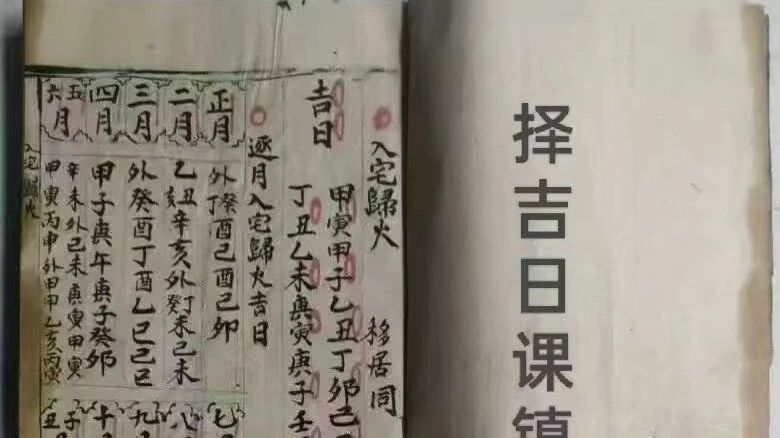 择吉日课镇
入宅歸火 移居同
吉日
甲寅甲子乙丑丁卯己
丁丑乙未庚寅庚子壬
逐月入宅歸火吉日
正月
外癸酉己酉己卯
外丁
二月
乙丑辛亥外丁未己未
亥 癸
三月
外癸酉丁酉乙巳己巳
四月
甲子庚午庚子癸卯
五月
辛未外己未庚寅甲寅
六月
甲寅丙申外甲申乙亥丙寅
入宅歸火
七
八
九
十
子
丑